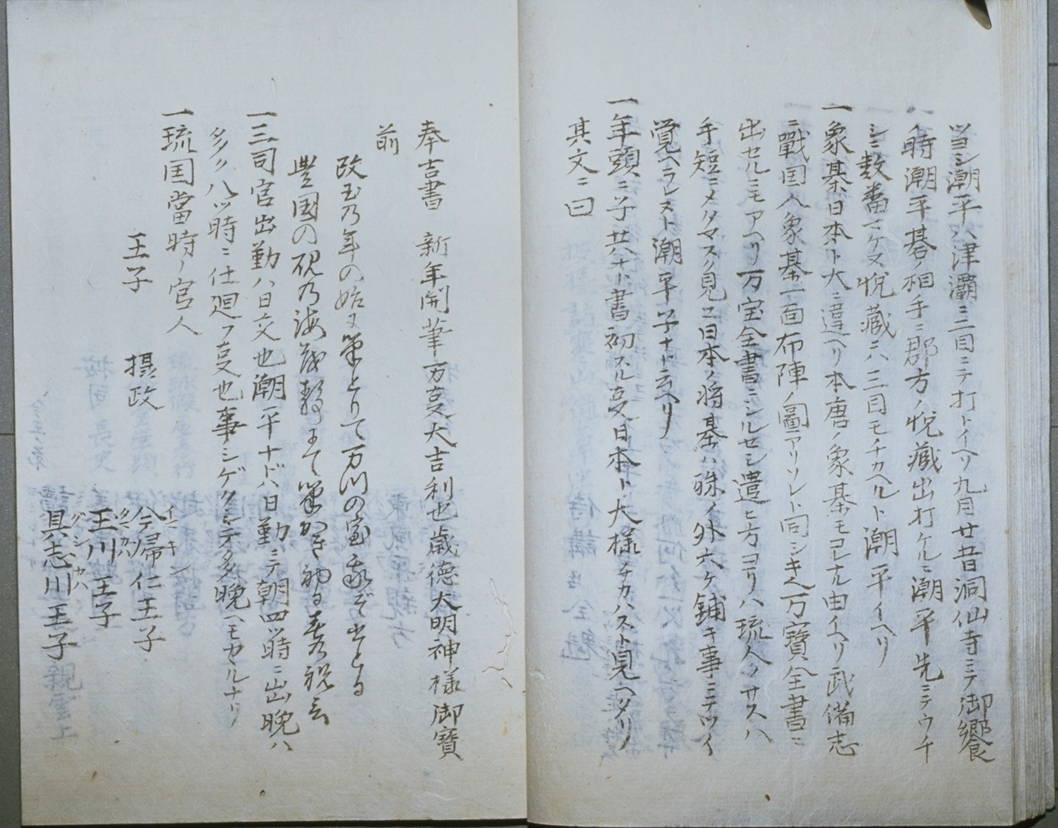 ヨシ潮平ハ津灞ニ三目ニテ打トイヘリ九月廿五日洞仙寺ニテ御饗
ノ時潮平碁ノ相手ニ郡方ノ悦藏出打ケルニ潮平先ニテウチ
シニ数番マケヌ悦蔵ニハ三目モチカヘルト潮平イヘリ
一象棊日本ト大ニ違ヘリ本唐ノ象棊モヨレナル由イヘリ武備志
ニ戦国人象棊一面布陣ノ圖アリソレト同シキヘ万寳全書ニ
出セルニモアヘリ万宝全書ニシルセシ遣ヒ方ヨリハ琉人ノサスハ
手短ニメタマスノ見ユ日本ノ将棊ハ殊ノ外六ケ鋪キ事ニテツイ
覚ヘラレスト潮平子ナト云ヘリ
一年頭ニ子共ナト書初スル事日本ト大様チカハスト見ヘタリ
其文ニ曰
奉吉書 新年開筆万事大吉利也歳徳大明神様御寳
前
政玉乃年の始に筆とりて万川の宝我ぞ出とる
豊国の硯乃海
一三司官出勤ハ日交也潮平ナドハ日勤ニテ朝四時ニ出晩ハ
多クハ八ツ時ニ仕廻フ事也事シゲクシテ多晩ヘモカヽルナリ
一琉国當時ノ官人
王子 摂政
イマキシン
今帰仁王子
タマカハ
玉川王子
グシカハ
具志川王子